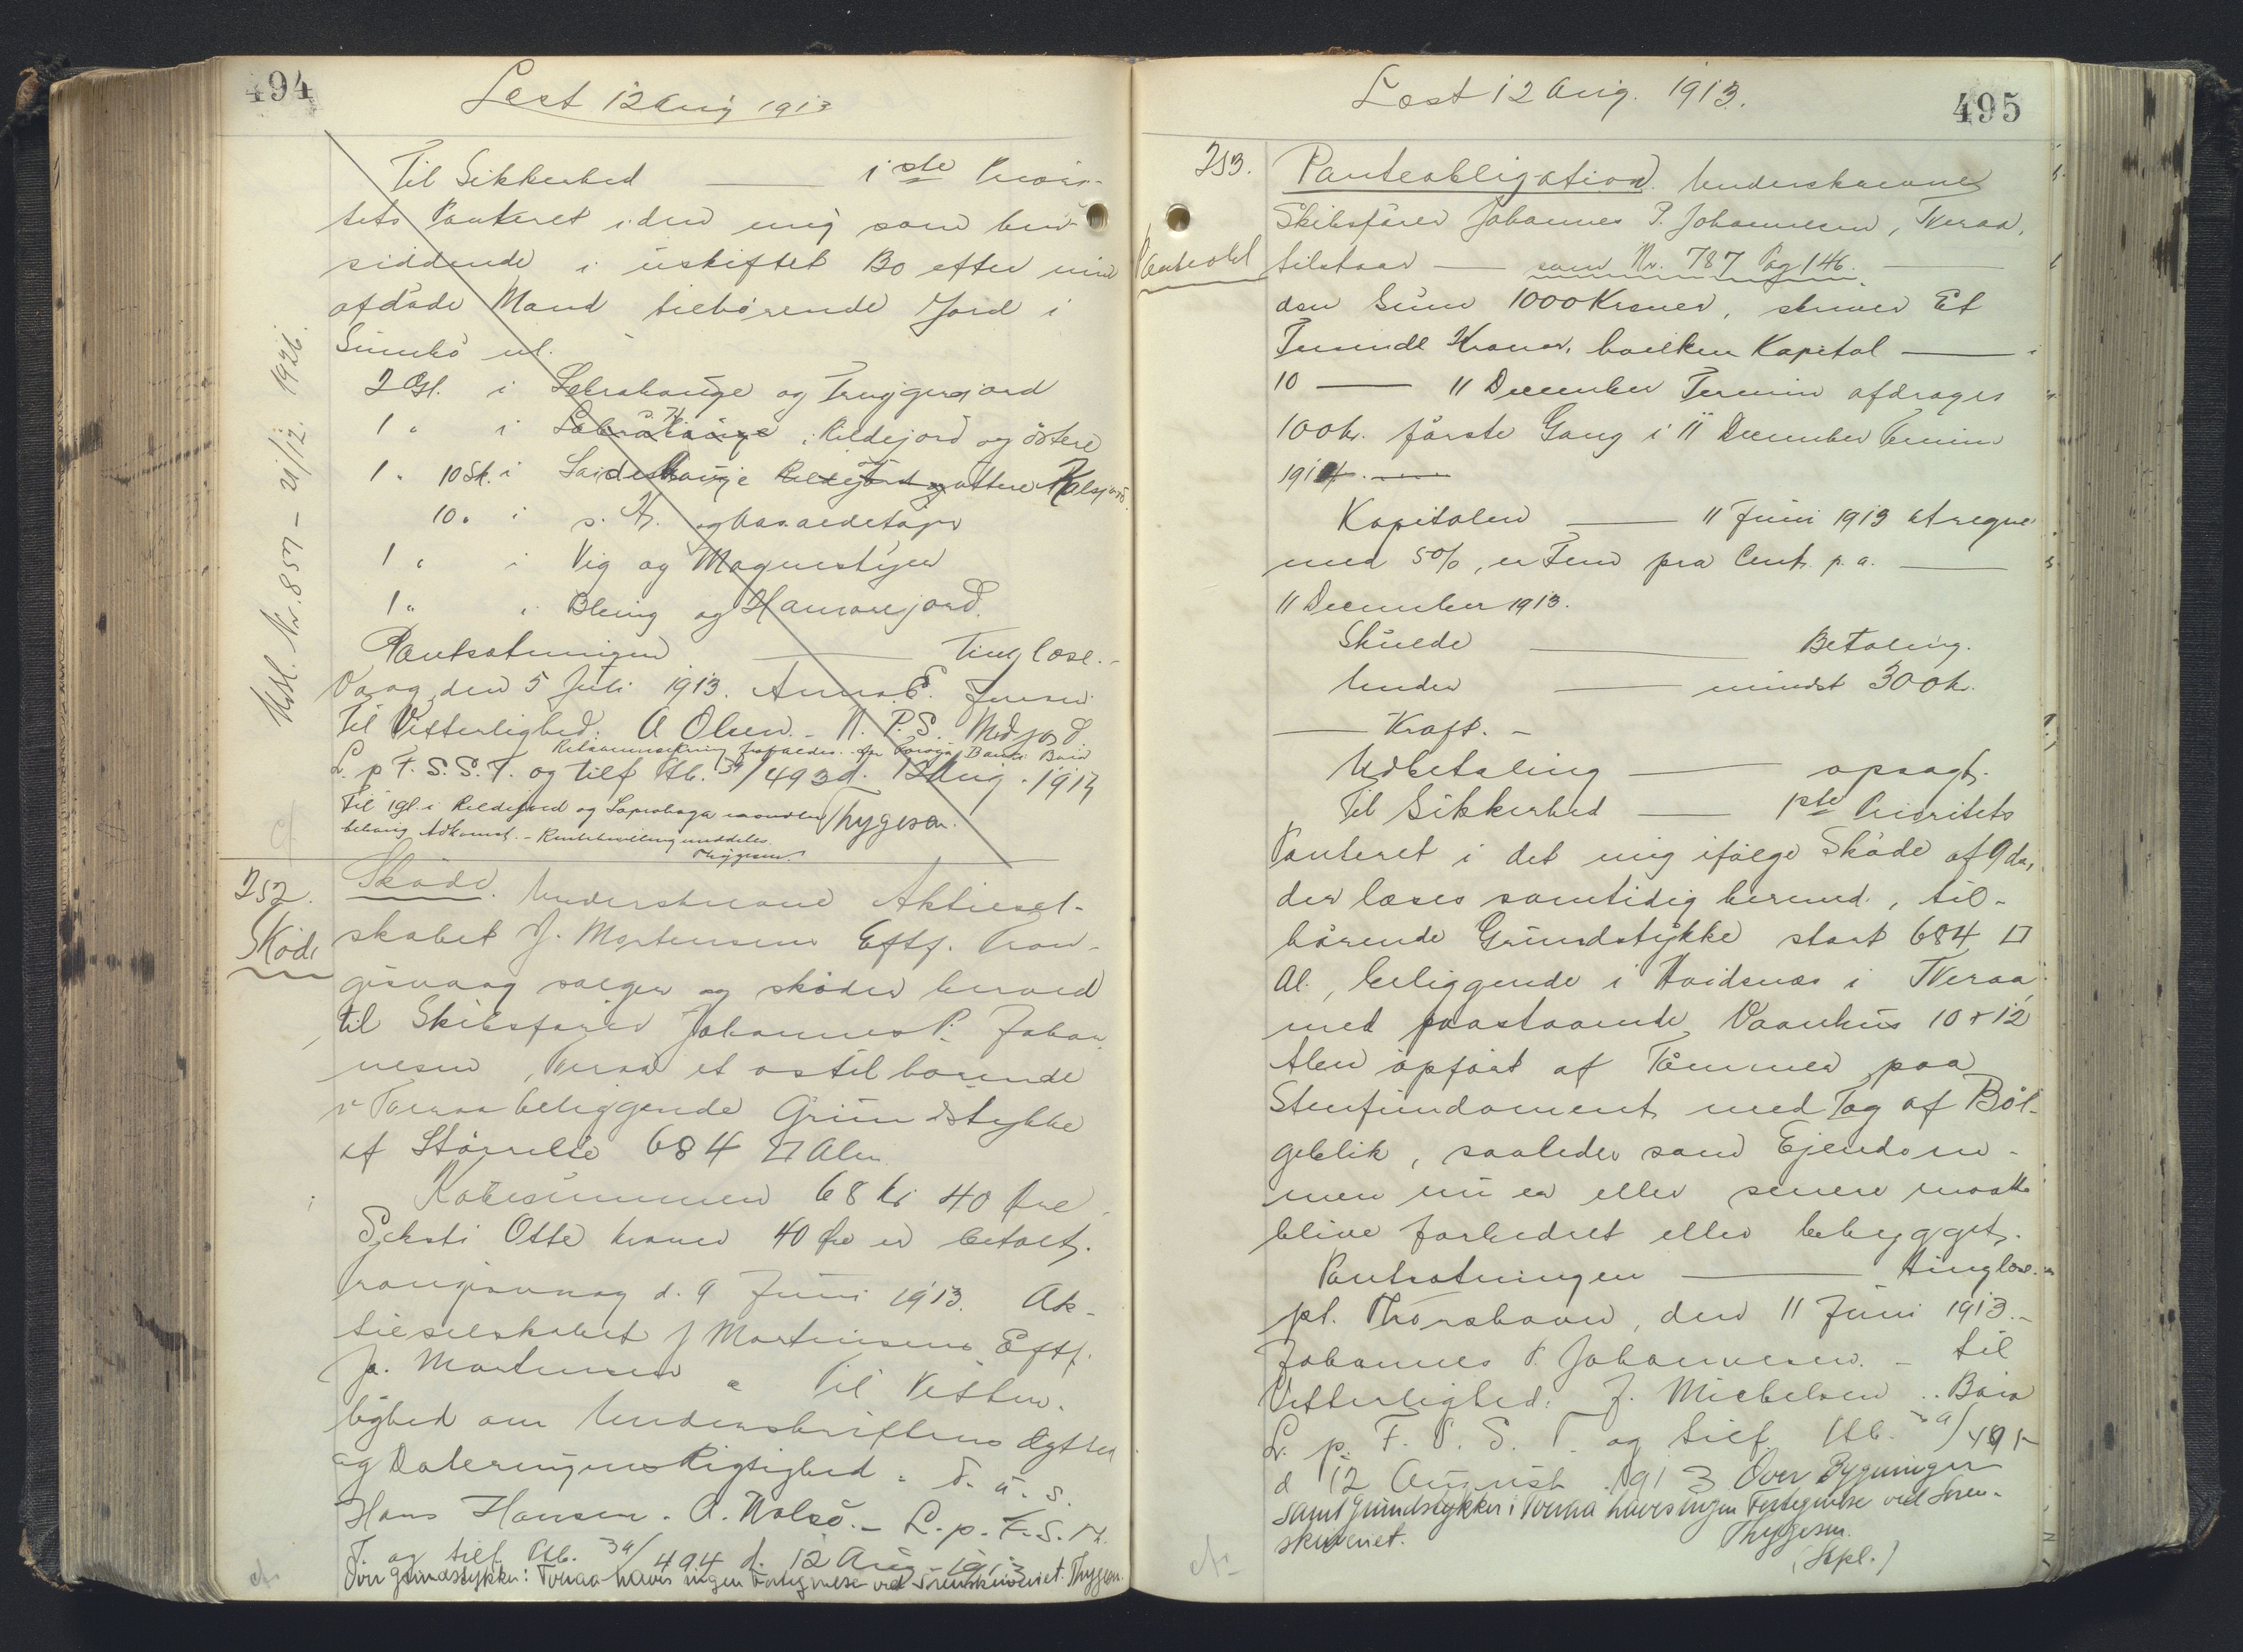 494
Læst 12 Aug 1913
Til Sikkerhed — 1ste Priori-
tets Panteret i den mig som hen-
siddende i uskiftet Bo efter min
afdøde Mand tilhørende Jord i
Sumbø nl.
2 Gl. i og
1 " i Kildejord og østere
1 " 10 Sk. i
10 " i s. H. og
1 " i Vig og
1 " i og
Pantsætningen — Tinglæse.-
Vaag, den 5 Juli 1913. Anna E. Jensen
Til Vitterlighed: A Olsen. - N. P. S. Midjord.
L. p F. S. S. T. og tilf Ab. 39/493 d. 12 Aug. 1913
Til 1 gl. i Kildejord og
behørig Adkomst. -
Thygesen.
Thygesen.
Udsl. Nr. 857 - 21/12. 1926.
252.
Skøde
Skøde. Underskrevne Aktiesel-
skabet J. Mortensens Eftf. Tran-
gisvaag sælger og skøder herved
til Skibsfører Johannes P. Johan-
nesen, Tveraa et os tilhørende
i Tveraa beliggende Grundstykke
af Størrelse 684 □ Alen
Købesummen 68 Kr 40 Øre
Seksti Otte Kroner 40 Øre er betalt.
Trangisvaag d. 9 Juni 1913. Ak-
tieselskabet J Mortensens Eftf.
Jo. Mortensen Til Vitter-
lighed om Underskriftens Ægthed
og Dateringens Rigtighed
Hans Hansen. O. Nolsø. - L. p. F. S. S.
T. og tilf. Ab. 39/494 d. 12 Aug 1913
Over Grundstykker i Tveraa haves ingen Fortegnelse ved Sorenskriveriet. Thygesen.
Læst 12 Aug. 1913.
495
253.
Panteobl
Panteobligation. Underskrevne
Skibsfører Johannes P. Johannesen, Tveraa,
tilstaar — som Nr. 787 Pag 146. —
den Sum 1000 Kroner, skriver Et
Tusinde Kroner, hvilken Kapital —
10 — 11 December Termin afdrages
100 Kr. første Gang i 11 December Termin
1914. —
Kapitalen — 11 Juni 1913 at regne
med 5%, er Fem pro Cent. p. a. —
11 December 1913.
Skulde — Betaling.
Under — mindst 300 Kr.
— Kraft. -
Udbetaling — opsagt.
Til Sikkerhed — 1ste Prioritets
Panteret i det mig ifølge Skøde af 9 ds,
der læses samtidig hermed, til-
hørende Grundstykke stort 684 □
Al., beliggende i Hvidenæs i Tveraa
med paastaaende Vaanhus 10 x 12
Alen opført af Tømmer paa
Stenfundament med Tag af Bøl-
geblik, saaledes som Ejendom-
men nu er eller senere maatte
blive forbedret eller bebygget.
Pantsætningen — tinglæse.
pt. Thorshavn, den 11 Juni 1913.-
Johannes P. Johannesen. - Til
Vitterlighed: J. Michelsen
L. p. F. S. S. T. og tilf Ab. 39/495
d 12 August 1913 Over Bygninger
samt Grundstykker i Tveraa haves ingen Fortegnelse ved Soren-
skriveriet.
Thygesen.